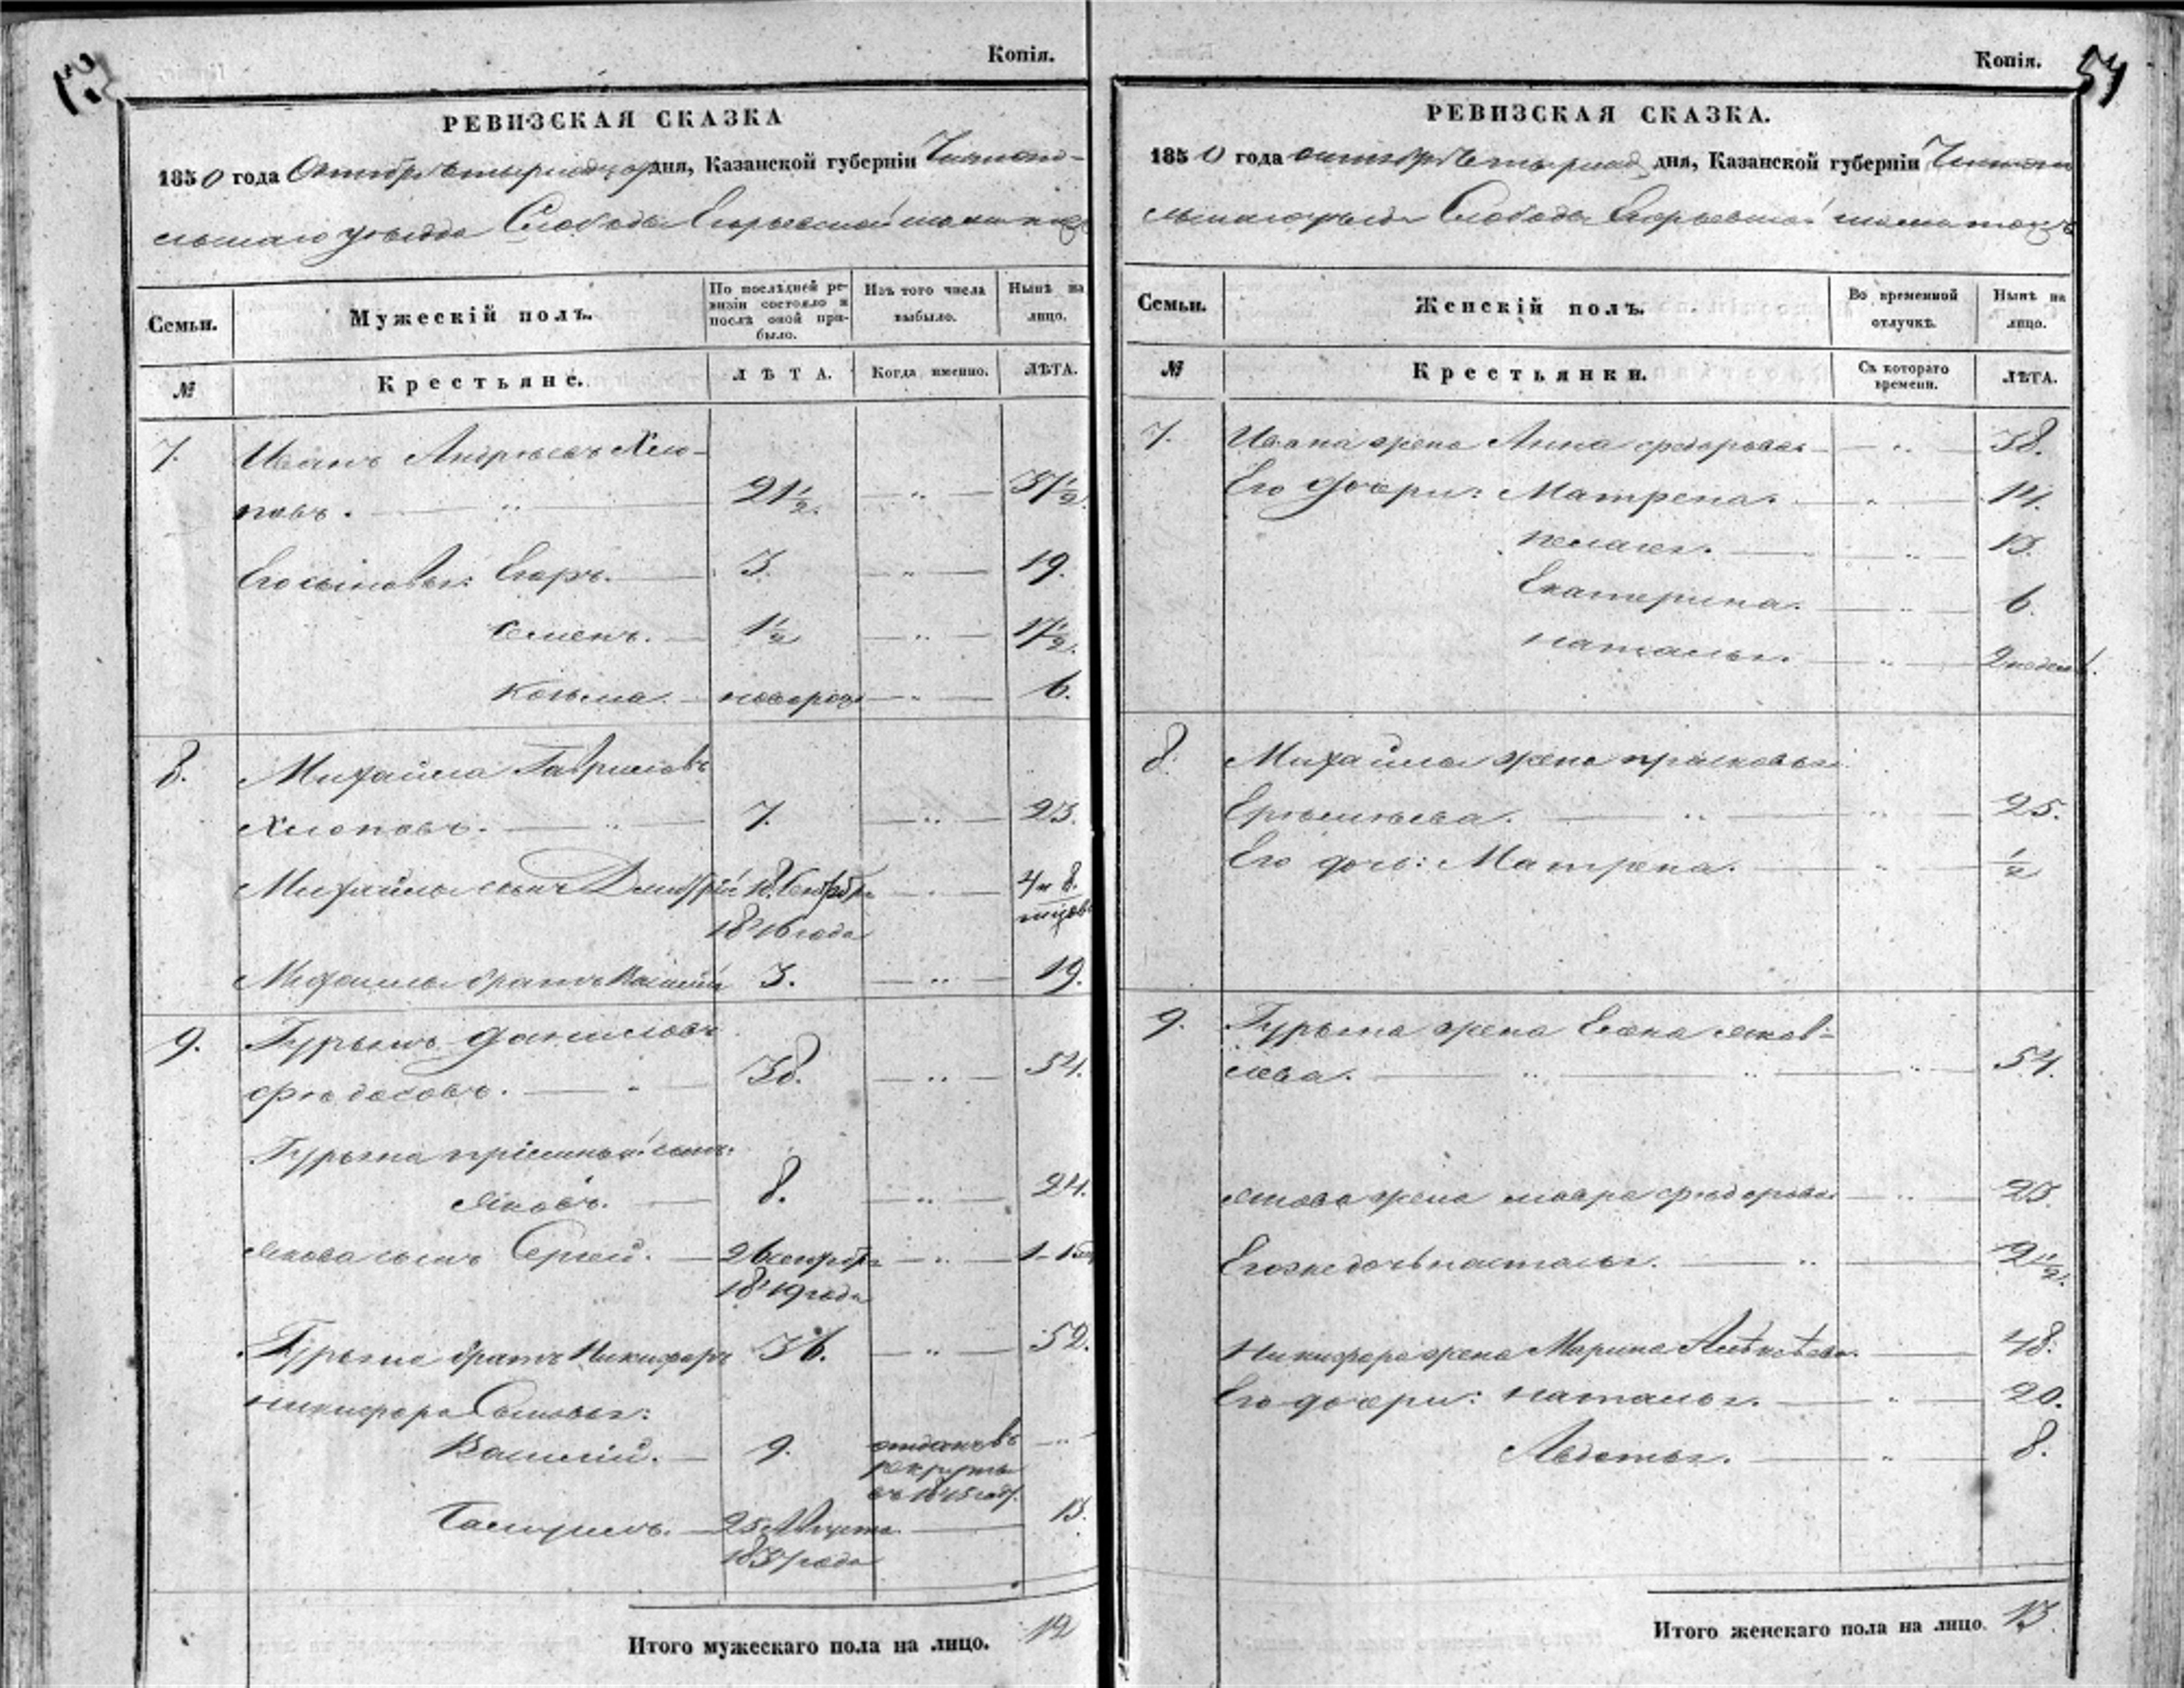 Копія.
РЕВИЗСКАЯ СКАЗКА
1850 года Октября дня, Казанской губерніи
уѣзда Слободы Егорьевской
Семьи.
Мужескій полъ.
По послѣдней ре-
визіи состояло и
послѣ оной при-
было.
Изъ того числа
выбыло.
Нынѣ на
лицо.
№
Крестьяне.
ЛѢТА.
Когда именно.
ЛѢТА.
7.
Иванъ Андреевъ Хло-
повъ. 21½ 37½
Его сыновья: Егоръ. 3. 19.
Семенъ. 1½ 17½.
Козьма. новорож 6.
8. Михайла Гавриловъ
Хлоповъ. 7. 23.
Михайлы сынъ Дмитрій 18. 4 и 8.
1846 года
Михайлы братъ Василій 3. 19.
9. Гурьянъ Даниловъ
Федосовъ. 38. 54.
Гурьяна пріемный сынъ
Яковъ. 8. 24.
Якова сынъ Сергей. 26 сентября
1849 года
Гурьяна братъ Никифоръ 36. 52.
Никифора Сыновья:
Василій. 9. отданъ въ
рекруты
въ 1845 году.
Гаврилъ. 25 Августа 13.
1837 года
Итого мужескаго пола на лицо. 12
Копія. 54
РЕВИЗСКАЯ СКАЗКА.
1850 года октября дня, Казанской губерніи
уѣзда Слободы Егорьевской
Семьи.
Женскій полъ.
Во временной
отлучкѣ.
Нынѣ на
лицо.
№
Крестьянки.
Съ котораго
времени.
ЛѢТА.
7. Ивана жена Анна Федорова 38.
Его дочери: Матрена. 14.
Пелагея. 13.
Екатерина. 6.
Наталья. 2 недел
8. Михайлы жена Прасковья
25.
Его дочь: Матрена. ½
9. Гурьяна жена Елена Яков-
лева. 54.
Якова жена Мавра Федорова 25.
Его же дочь Наталья. 2½.
Никифора жена Марина 48.
Его дочери: Наталья. 20.
Авдотья. 8.
Итого женскаго пола на лицо. 13.